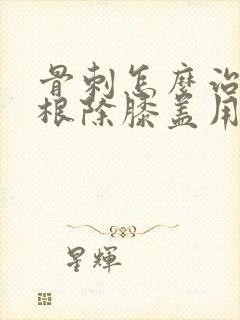 骨刺怎麼治
根除膝盖用
星輝